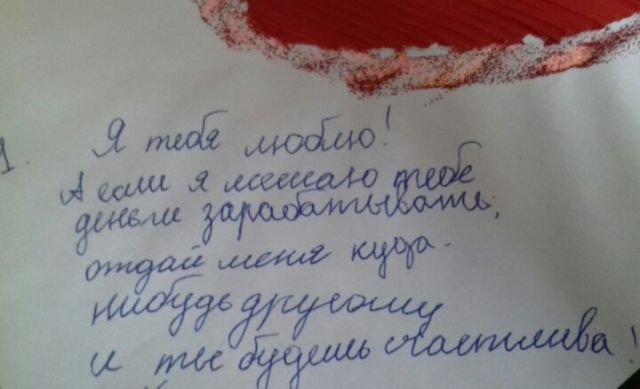 1. Я тебя люблю!
А если я мешаю тебе
деньги зарабатывать,
отдай меня куда-
нибудь другому
и ты будешь счастлива!